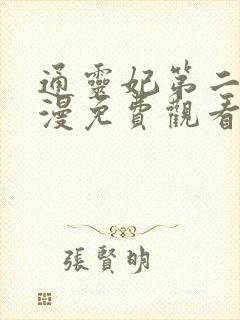 通靈妃第二
漫免費觀看
張賢明